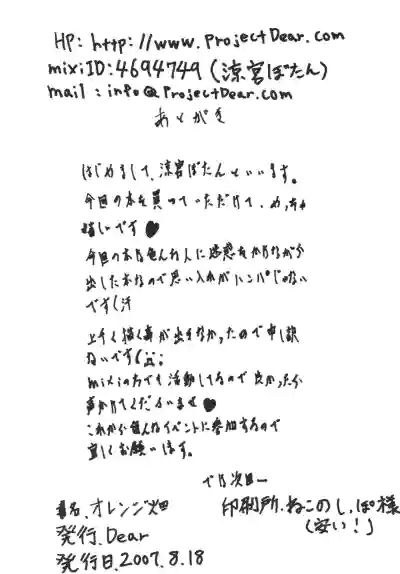 HP: http://www.ProjectDear.com
mixiID:4694749(涼宮ぼたん)
mail:info@ProjectDear.com
あとがき
はじめまして、涼宮ぼたんといいます。
今回の本を買っていただけて、めっちゃ
嬉しいです♥
今回の本は色んな人に迷惑をかけながら
出した本なので思い入れがハンパじゃない
です(汗
上手く描く事が出来なかったので申し訳
ないです(;;
mixiの方でも活動してるので良かったら
声かけてくださいませ♥
これから色んなイベントに参加するので
宜しくお願いします。
では次回ー
書名.オレンジ畑
発行.Dear
発行日.2007.8.18
印刷所.ねこのしっぽ様
(安い!)